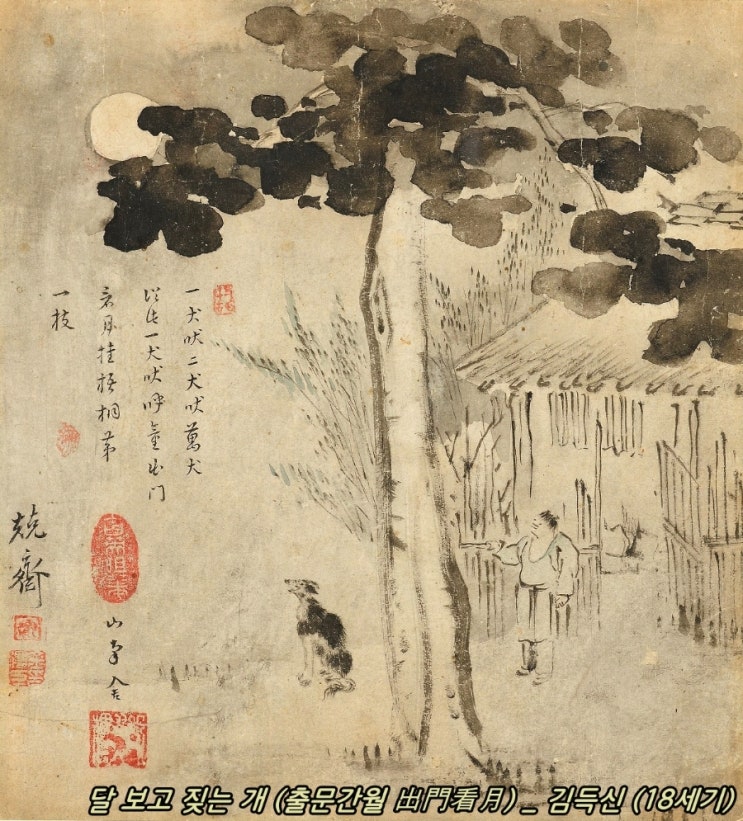 一犬吠二犬吠萬犬
從此一犬吠呼童出门
看月挂梧桐第
一枝
兢齋
달 보고 짖는 개 (출문간월 出門看月) _ 김득신 (18세기)